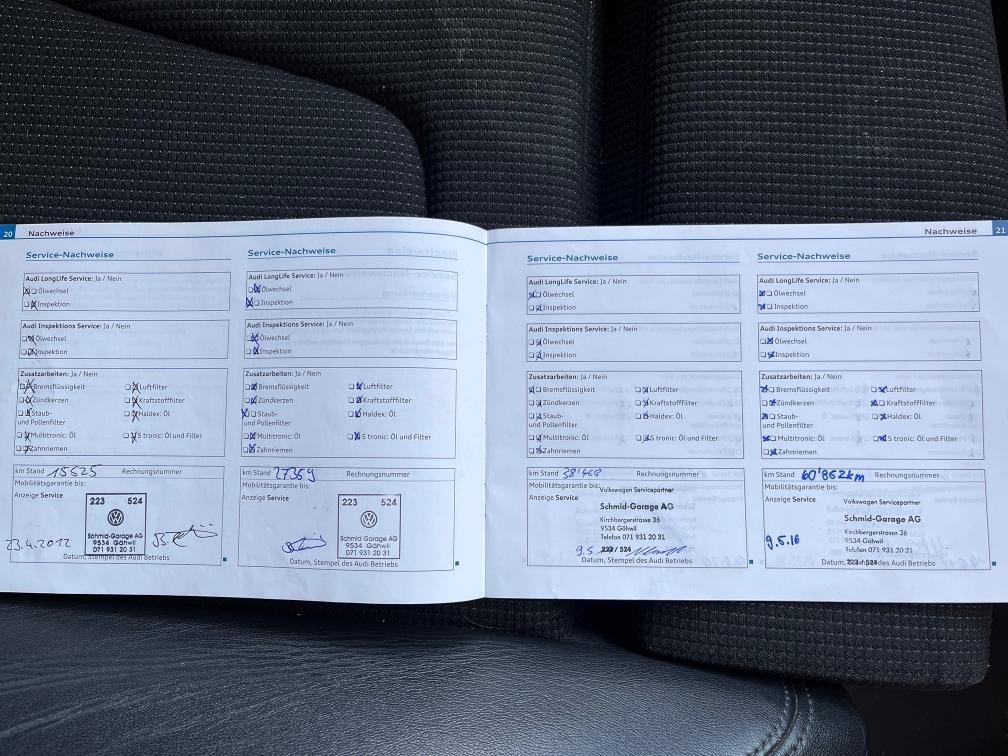 20 Nachweise
Service-Nachweise
Audi LongLife Service: Ja / Nein
Ölwechsel
Inspektion
Audi Inspektions Service: Ja / Nein
Ölwechsel
Inspektion
Zusatzarbeiten: Ja / Nein
Bremsflüssigkeit Luftfilter
Zündkerzen Kraftstofffilter
Staub- Haldex: Öl
und Pollenfilter
Multitronic: Öl S tronic: Öl und Filter
Zahnriemen
km Stand 15525 Rechnungsnummer
Mobilitätsgarantie bis:
Anzeige Service
223 524
Schmid-Garage AG
9534 Gähwil
071 931 20 31
23.4.2012
Datum, Stempel des Audi Betriebs
Service-Nachweise
Audi LongLife Service: Ja / Nein
Ölwechsel
Inspektion
Audi Inspektions Service: Ja / Nein
Ölwechsel
Inspektion
Zusatzarbeiten: Ja / Nein
Bremsflüssigkeit Luftfilter
Zündkerzen Kraftstofffilter
Staub- Haldex: Öl
und Pollenfilter
Multitronic: Öl S tronic: Öl und Filter
Zahnriemen
km Stand 27359 Rechnungsnummer
Mobilitätsgarantie bis:
Anzeige Service
223 524
Schmid-Garage AG
9534 Gähwil
071 931 20 31
Datum, Stempel des Audi Betriebs
Nachweise 21
Service-Nachweise
Audi LongLife Service: Ja / Nein
Ölwechsel
Inspektion
Audi Inspektions Service: Ja / Nein
Ölwechsel
Inspektion
Zusatzarbeiten: Ja / Nein
Bremsflüssigkeit Luftfilter
Zündkerzen Kraftstofffilter
Staub- Haldex: Öl
und Pollenfilter
Multitronic: Öl S tronic: Öl und Filter
Zahnriemen
km Stand 38'468 Rechnungsnummer
Mobilitätsgarantie bis:
Volkswagen Servicepartner
Anzeige Service
Schmid-Garage AG
Kirchbergerstrasse 36
9534 Gähwil
Telefon 071 931 20 31
9.5. 223 / 524
Datum, Stempel des Audi Betriebs
Service-Nachweise
Audi LongLife Service: Ja / Nein
Ölwechsel
Inspektion
Audi Inspektions Service: Ja / Nein
Ölwechsel
Inspektion
Zusatzarbeiten: Ja / Nein
Bremsflüssigkeit Luftfilter
Zündkerzen Kraftstofffilter
Staub- Haldex: Öl
und Pollenfilter
Multitronic: Öl S tronic: Öl und Filter
Zahnriemen
km Stand 60'862km Rechnungsnummer
Mobilitätsgarantie bis:
Anzeige Service
Volkswagen Servicepartner
Schmid-Garage AG
Kirchbergerstrasse 36
9534 Gähwil
9.5.16
Telefon 071 931 20 31
223 / 524
Datum, Stempel des Audi Betriebs